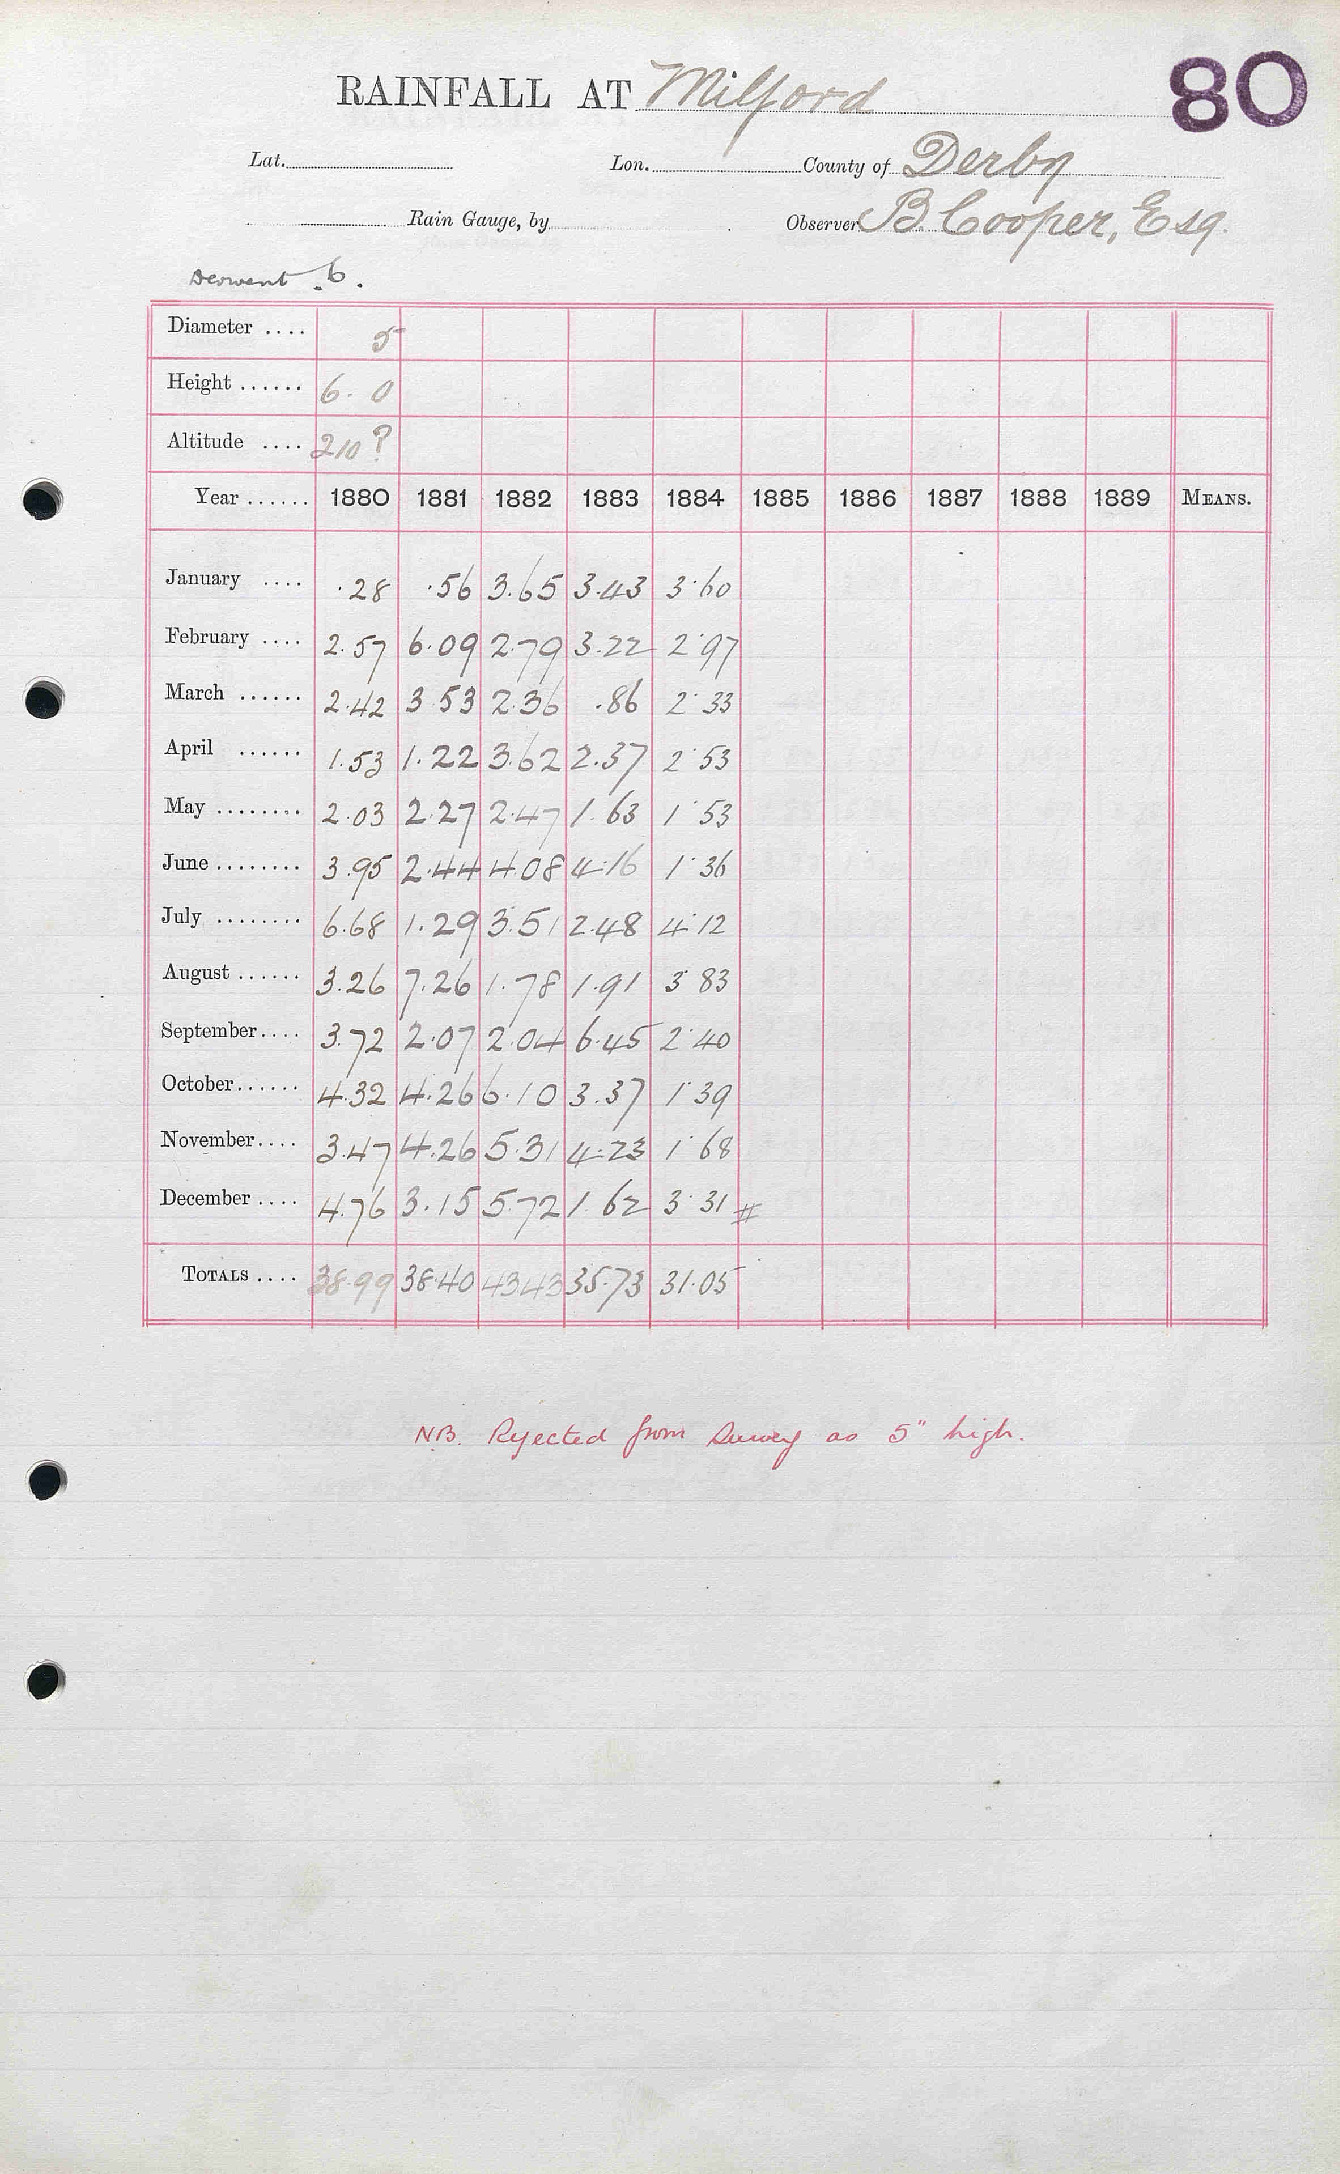 RAINFALL AT Milford 80
Lat. Lon. County of Derby
Rain Gauge, by Observer B. Cooper, Esq.
Derwent 6.
Diameter .... 5
Height ...... 6. 0
Altitude .... 210?
Year ...... 1880 1881 1882 1883 1884 1885 1886 1887 1888 1889 MEANS.
January .... .28 .56 3.65 3.43 3.60
February .... 2.57 6.09 2.79 3.22 2.97
March ...... 2.42 3.53 2.36 .86 2.33
April ...... 1.53 1.22 3.62 2.37 2.53
May ........ 2.03 2.27 2.47 1.63 1.53
June ........ 3.95 2.44 4.08 4.16 1.36
July ........ 6.68 1.29 3.51 2.48 4.12
August ...... 3.26 7.26 1.78 1.91 3.83
September.... 3.72 2.07 2.04 6.45 2.40
October...... 4.32 4.26 6.10 3.37 1.39
November.... 3.47 4.26 5.31 4.23 1.68
December .... 4.76 3.15 5.72 1.62 3.31 #
TOTALS .... 38.99 38.40 43.43 35.73 31.05
NB. Rejected from Survey as 5" high.